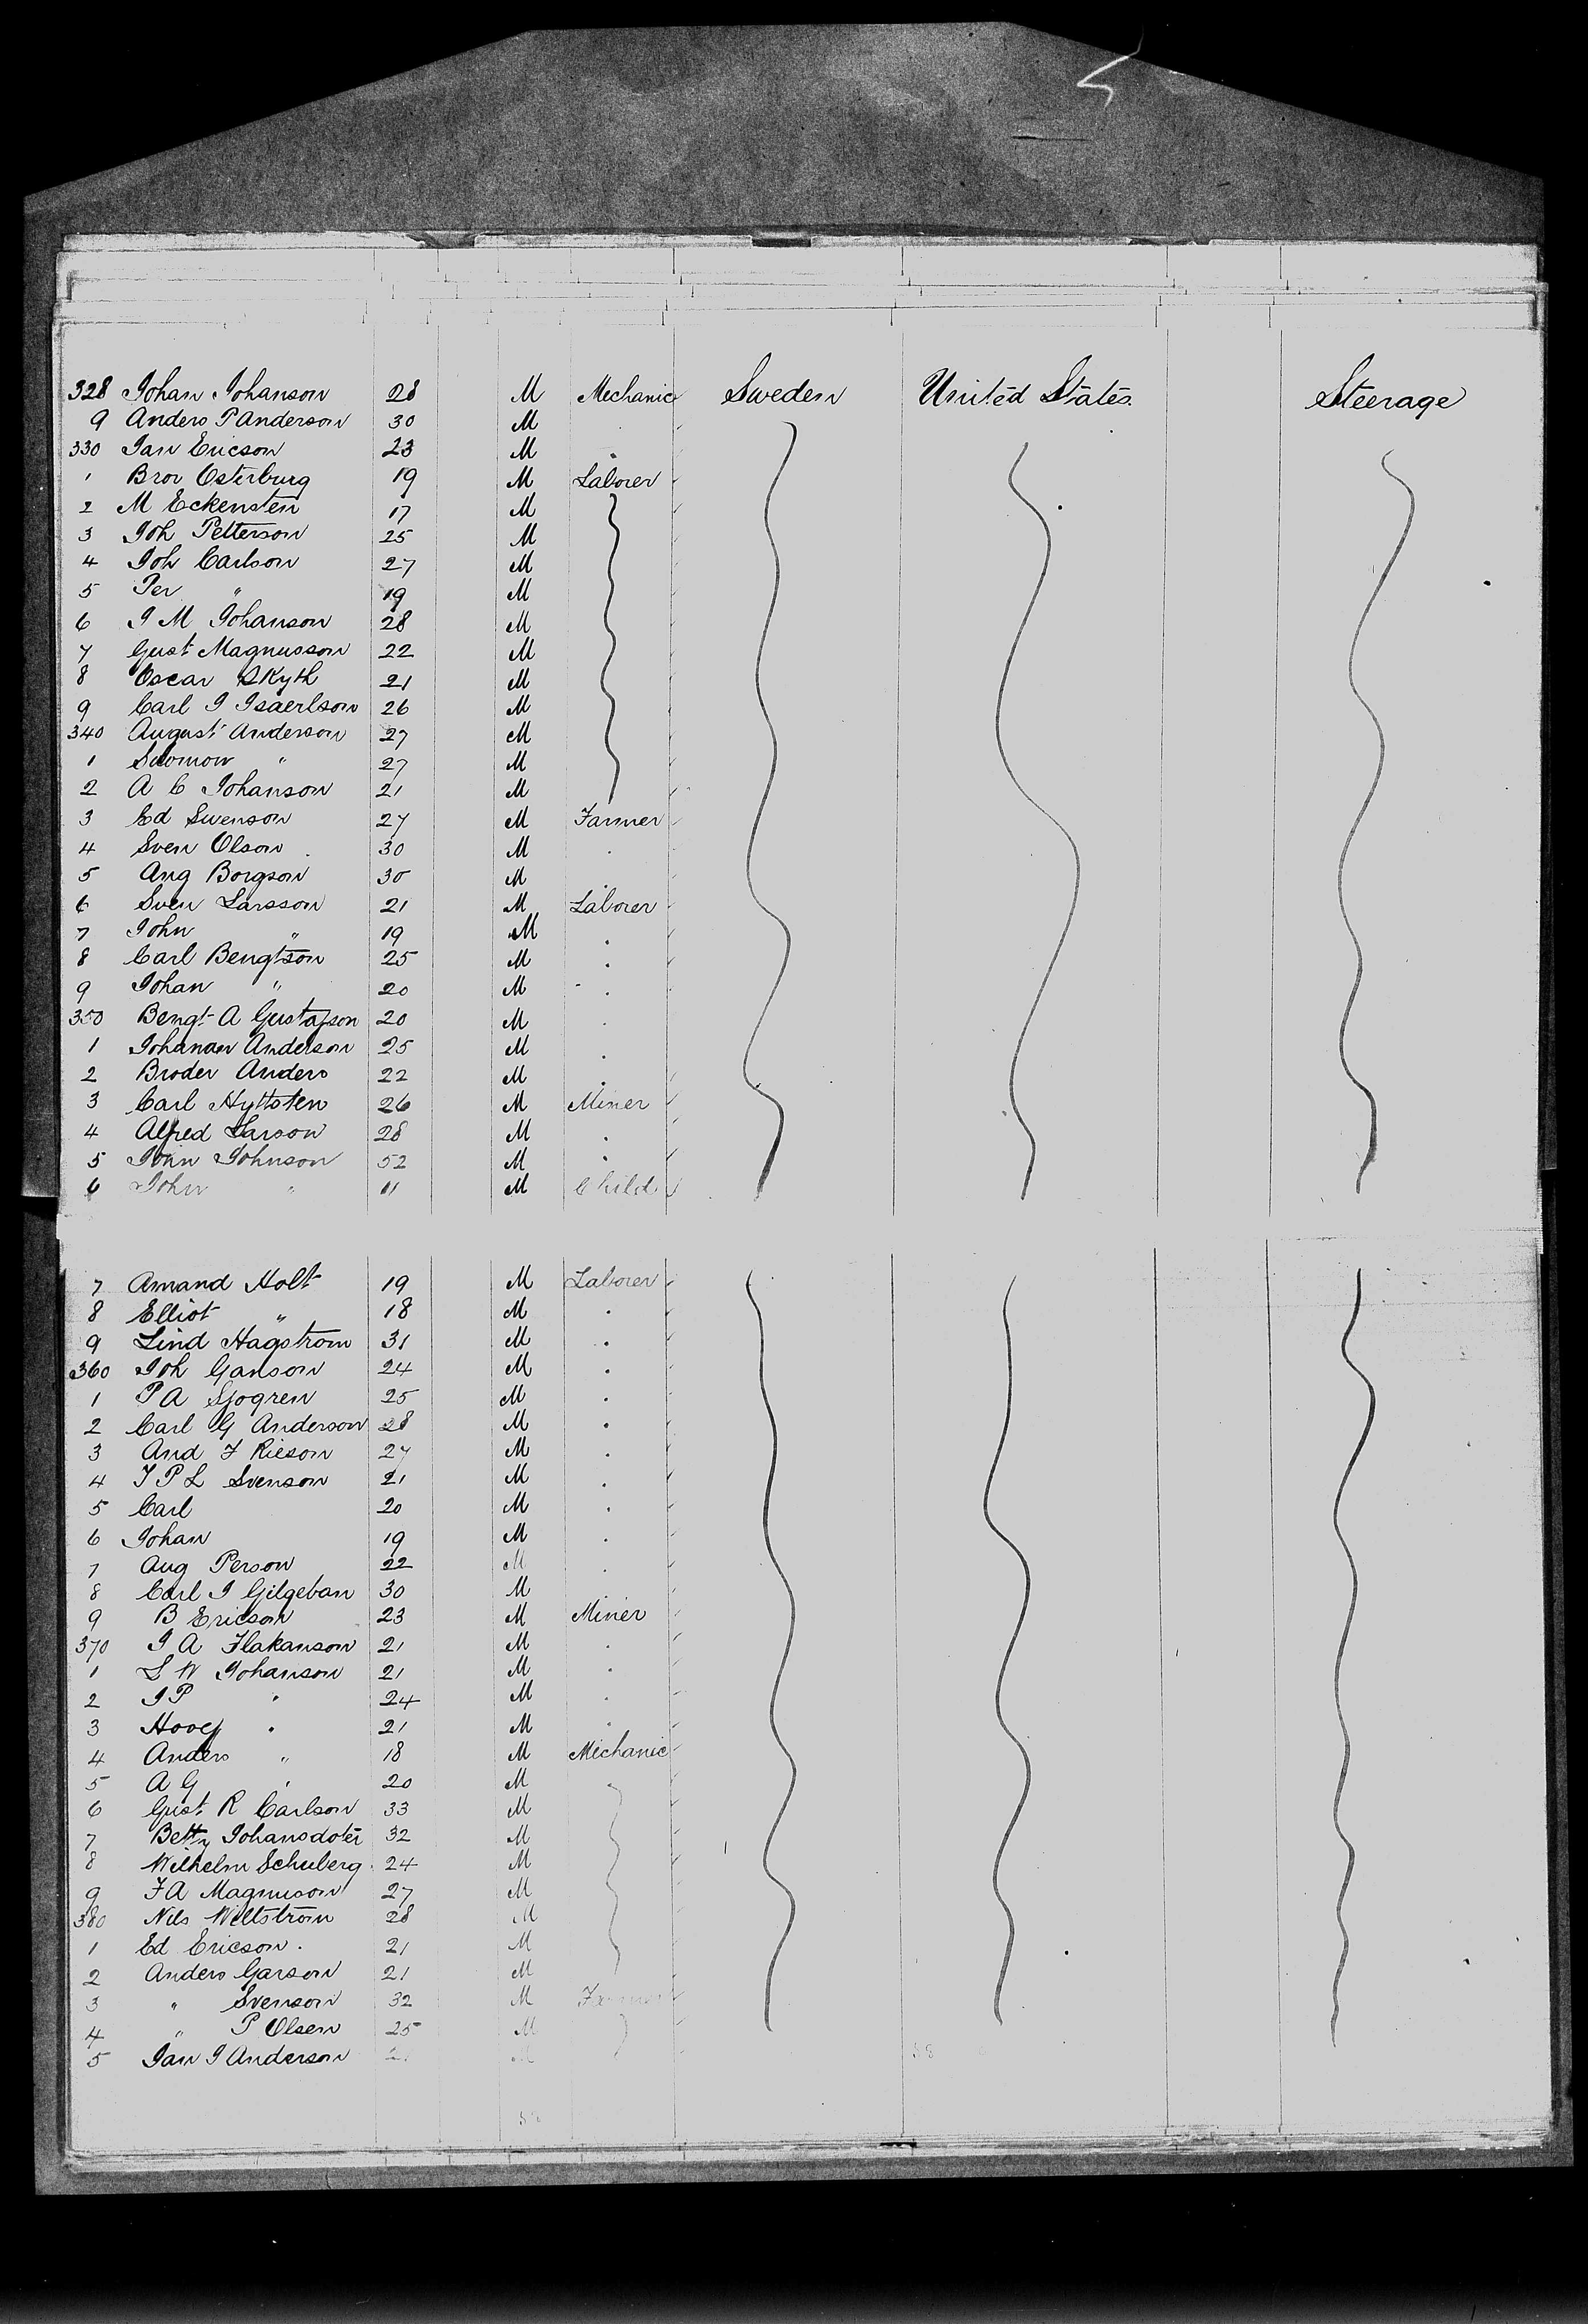 328 Johan Johanson 28 M Mechanic Sweden United States. Steerage
9 Anders P Anderson 30 M
330 Jan Ericson 23 M "
1 Bror Osterburg 19 M Laborer
2 M Eckensten 17 M
3 Joh Petterson 25 M
4 Joh Carlson 27 M
5 Per " 19 M
6 J M Johanson 28 M
7 Gust Magnusson 22 M
8 Oscar Skyth 21 M
9 Carl J Isaerlson 26 M
340 August Anderson 27 M
1 Solomon " 27 M
2 A C Johanson 21 M
3 Ed Swenson 27 M Farmer
4 Sven Olson 30 M .
5 Aug Borgson 30 M .
6 Sven Larsson 21 M Laborer
7 John " 19 M .
8 Carl Bengtson 25 M .
9 Johan " 20 M .
350 Bengt A Gustafson 20 M .
1 Johanan Anderson 25 M .
2 Broder Anders 22 M .
3 Carl Hyttsten 26 M Miner
4 Alfred Larson 28 M .
5 John Johnson 52 M .
6 John " 11 M Child
7 Amand Holt 19 M Laborer
8 Elliot " 18 M .
9 Lind Hagstrom 31 M .
360 Joh Ganson 24 M .
1 P A Sjogren 25 M .
2 Carl G Anderson 28 M .
3 And F Ricson 27 M .
4 J P L Svenson 21 M .
5 Carl 20 M .
6 Johan 19 M .
7 Aug Person 22 M .
8 Carl J Gilgeban 30 M .
9 B Ericson 23 M Miner
370 J A Hakanson 21 M .
1 S W Johanson 21 M .
2 J P " 24 M .
3 Hoog " 21 M .
4 Anders " 18 M Mechanic
5 A G " 20 M
6 Gust R Carlson 33 M
7 Betty Johansdoter 32 M
8 Wilhelm Schuberg 24 M
9 F A Magnuson 27 M
380 Nils Wellstrom 28 M
1 Ed Ericson. 21 M
2 Anders Garson 21 M
3 " Svenson 32 M Farmer
4 " P Olsen 25 M
5 Jan J Anderson M
58